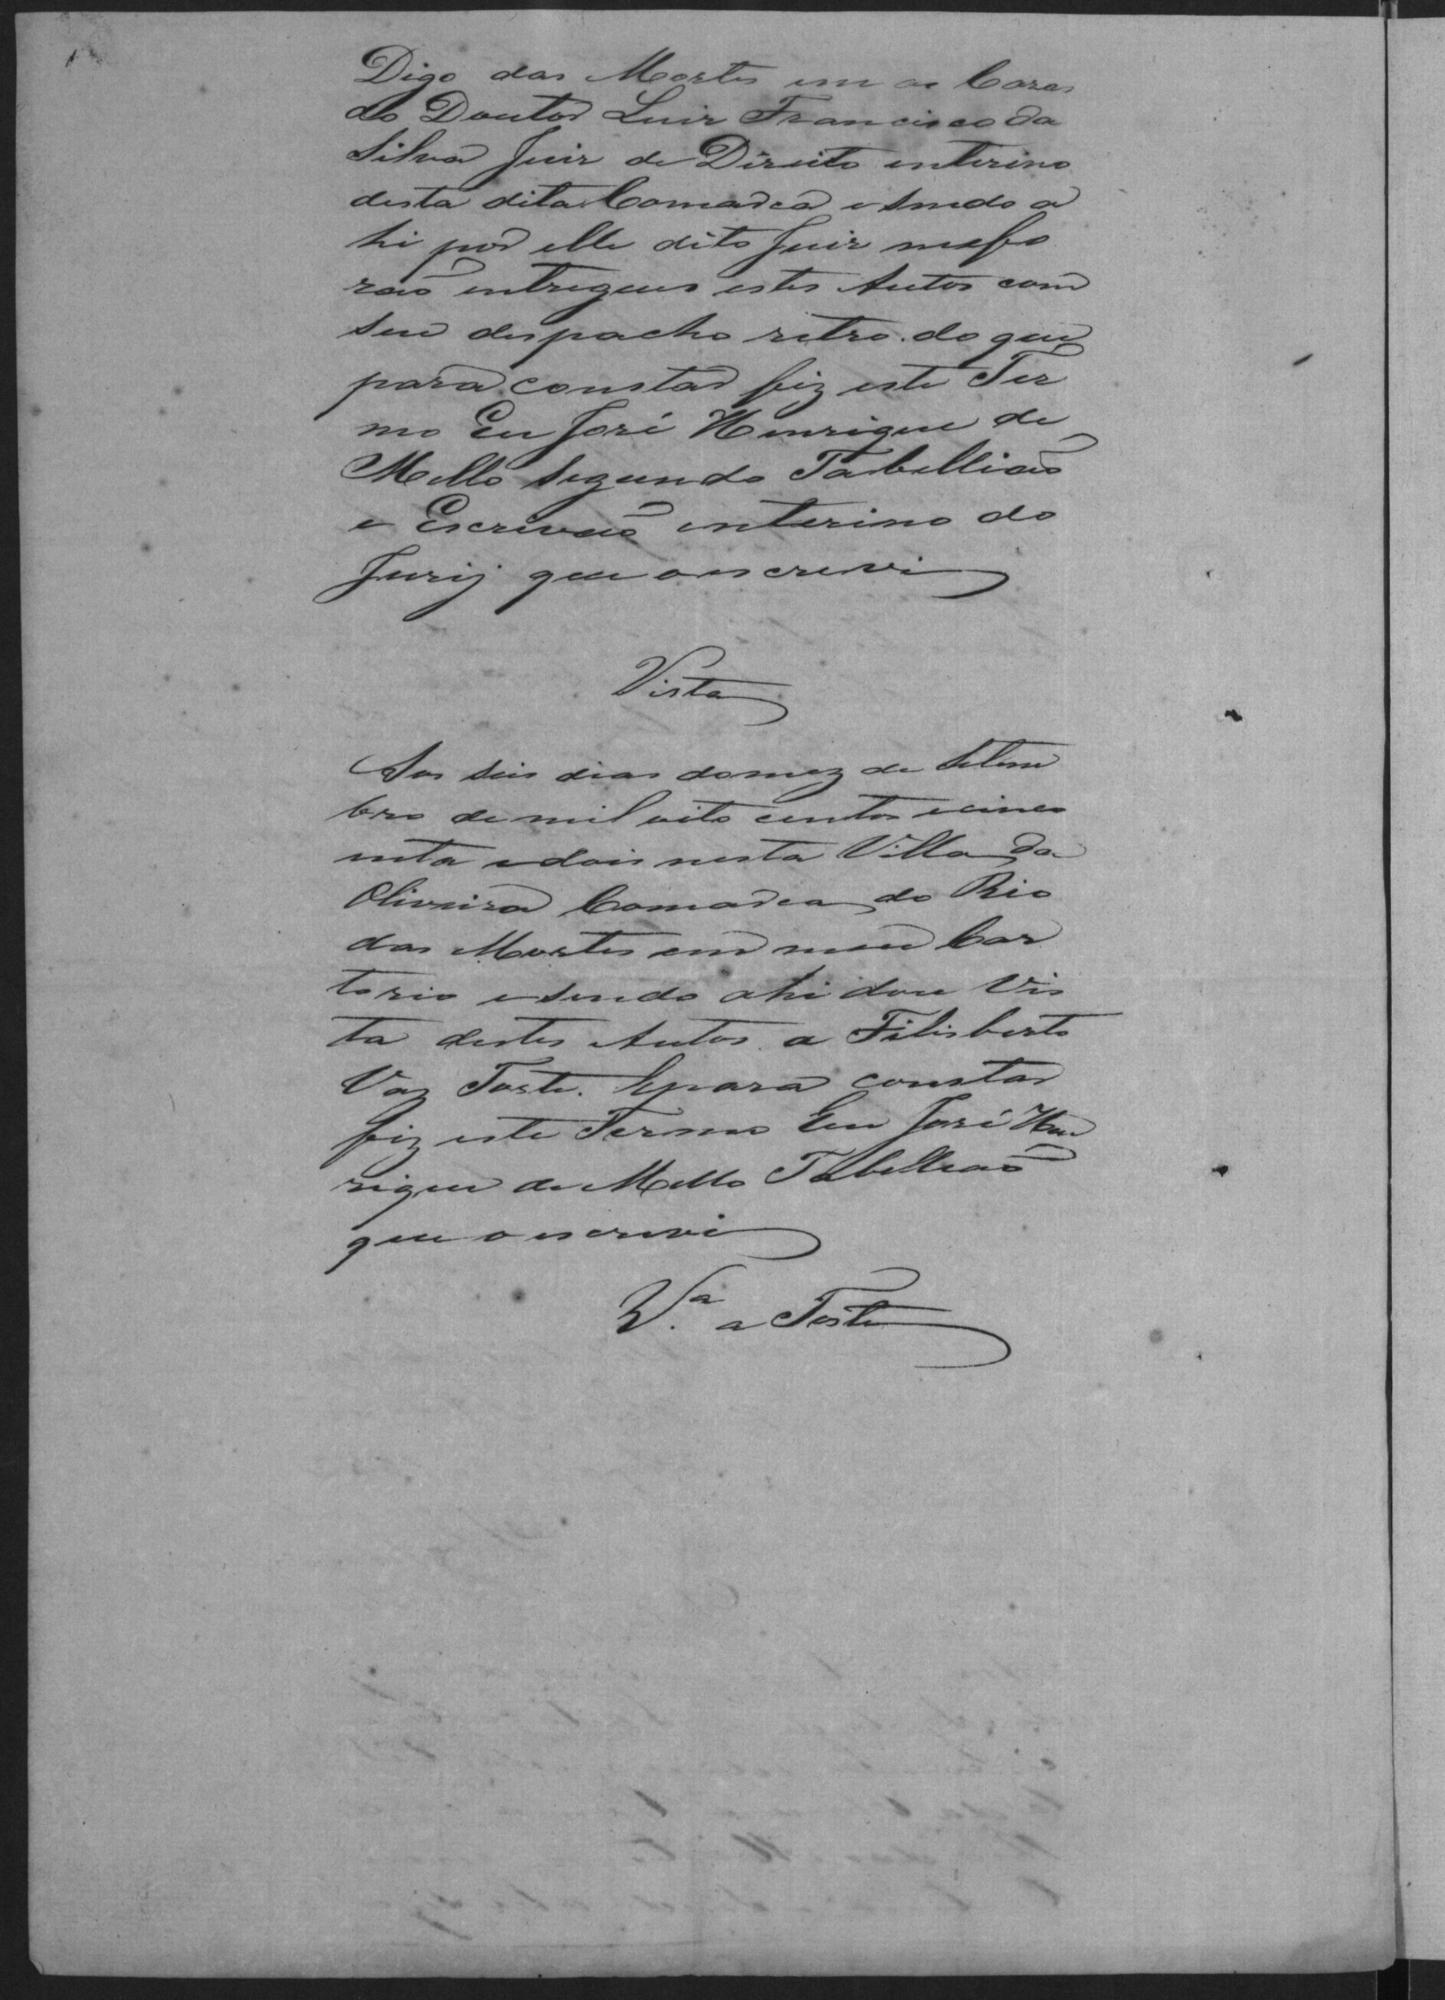 Digo das Mortes em as Cazas
do Doutor Luiz Francisco da
Silva Juiz de Direito enterino
desta dita Comarca e sendo a
hi por elle dito Juiz mefo
rão entregues estes Autos com
seu despacho retro. do que
para constar fiz este Ter
mo Eu José Henrique de
Mello Segundo Tabellião
e Escrivão enterino do
Jurij que o escrevi
Vista
Aos seis dias do mez de Setem
bro de mil oito centos e cinco
enta e dois nesta Villa da
Oliveira Comarca do Rio
das Mortes em meu Car
torio e sendo ahi dou Vis
ta destes Autos a Felisberto
Vaz Toste. E para constar
fiz este Termo Eu José Hen
rique de Mello Tabellião
que o escrevi
V.ª a Toste